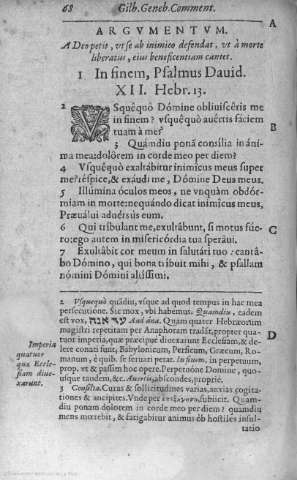 68 Gilb. Geneb. Comment.
A
ARGVMENTVM.
A Deo petit, vt se ab inimico defendat, vt à morte
liberatus, eius beneficentiam cantet.
1 In finem, Psalmus Dauid.
XII. Hebr. 13.
B
2 VSquéquò Dómine obliuiscéris me
in finem? vsquéquò auértis faciem
tuam à me?
3 Quámdiu ponā consília in áni-
ma mea: dolórem in corde meo per diem?
4 Vsquéquò exaltábitur inimícus meus super
me? réspice, & exáudi me, Dómine Deus meus.
5 Illúmina óculos meos, ne vnquàm obdór-
miam in morte: nequándo dicat inimícus meus,
Præuálui aduérsùs eum.
C
6 Qui tríbulant me, exultábunt, si motus fúe-
ro: ego autem in misericórdia tua speráui.
7 Exultábit cor meum in salutári tuo: cantá-
bo Dómino, qui bona tríbuit mihi, & psallam
nómini Dómini altíssimi.
2 Vsquequò quádiu, vsque ad quod tempus in hac mea
persecutione. Sic mox, vbi habemus. Quamdiu, eadem
est vox, עד אנה Aad ána. Quam quater Hebræorum
magistri repetitam per Anaphoram tradūt, propter qua-
D
Imperia
quatuor
quæ Eccle-
siam diue-
xarunt.
tuor imperia, quæ præcipuè diuexarunt Ecclesiam, & de-
lere conati sunt, Babylonicum, Persicum, Græcum, Ro-
manum, è quib. se seruari petat. In finem, in perpetuum,
prop. vt & passim hoc opere. Perpetuóne Domine, quo-
usque tandem, &c. Auertis, abscondes, propriè.
3 Consilia. Curas & sollicitudines varias, anxias cogita-
tiones & ancipites. Vnde per subiicit. Quam-
diu ponam dolorem in corde meo per diem? quamdiu
mens mœrebit, & fatigabitur animus ob hostilés insul-
tatio